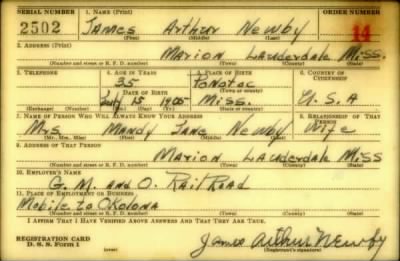 SERIAL NUMBER 1. NAME (Print) ORDER NUMBER
2502 James Arthur Newby 14
(First) (Middle) (Last)
2. ADDRESS (Print)
Marion Lauderdale Miss.
(Number and street or R. F. D. number) (Town) (County) (State)
3. TELEPHONE 4. AGE IN YEARS 5. PLACE OF BIRTH 6. COUNTRY OF CITIZENSHIP
35 Pontotoc
DATE OF BIRTH (Town or county)
July 15 1905 Miss. U.S.A
(Exchange) (Number) (Mo.) (Day) (Yr.) (State or country)
7. NAME OF PERSON WHO WILL ALWAYS KNOW YOUR ADDRESS 8. RELATIONSHIP OF THAT PERSON
Mrs Mandy Jane Newby Wife
(Mr., Mrs., Miss) (First) (Middle) (Last)
9. ADDRESS OF THAT PERSON
Marion Lauderdale Miss
(Number and street or R. F. D. number) (Town) (County) (State)
10. EMPLOYER'S NAME
G. M. and O. Rail Road
11. PLACE OF EMPLOYMENT OR BUSINESS
Mobile to Okolona
(Number and street or R. F. D. number) (Town) (County) (State)
I AFFIRM THAT I HAVE VERIFIED ABOVE ANSWERS AND THAT THEY ARE TRUE.
REGISTRATION CARD
D. S. S. Form 1 James Arthur Newby
(Registrant's signature)